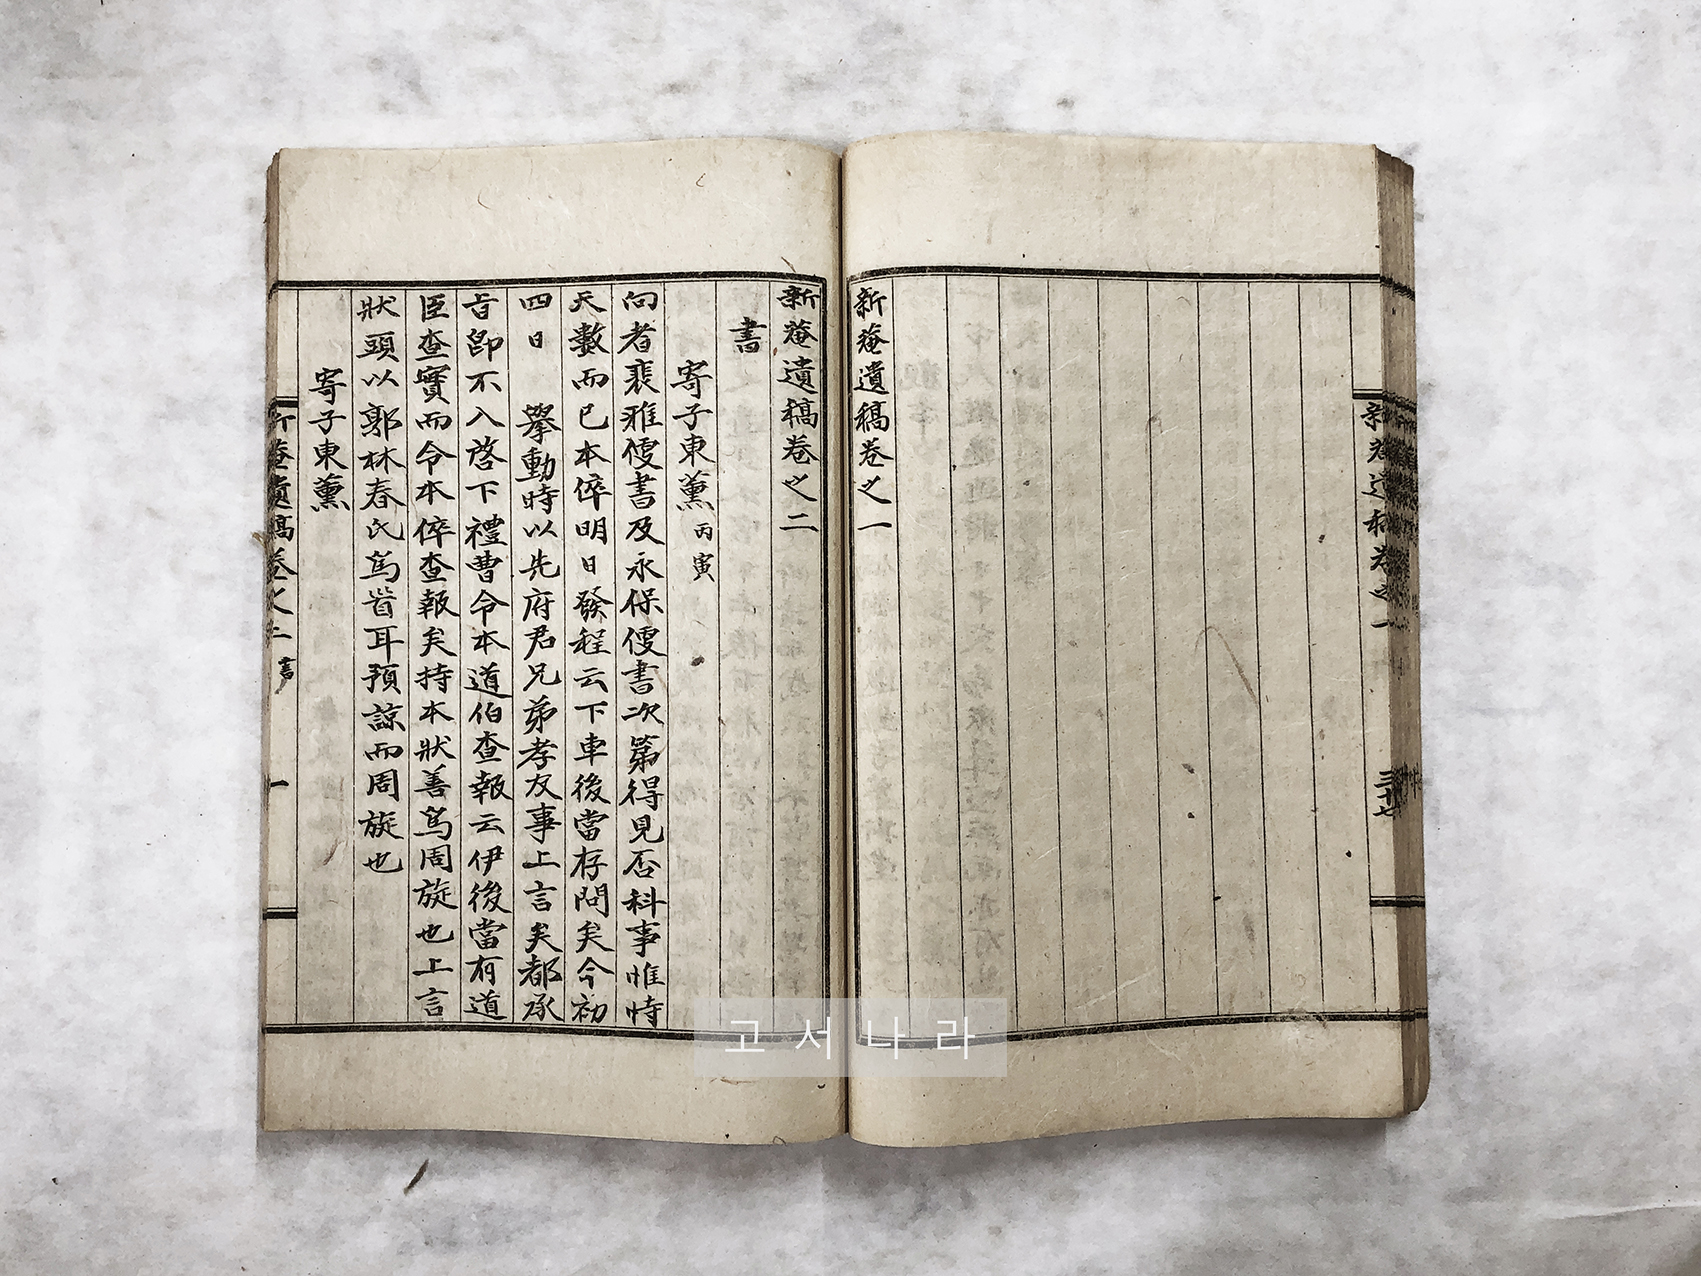 新菴遺稿卷之一
三十七
新菴遺稿卷之一
新菴遺稿卷之二
書
寄子東薰 丙寅
向者裴雅便書及永保便書次第得見否科事惟恃
天數而已本倅明日發程云下車後當存問矣今初
四日 擧動時以先府君兄弟孝友事上言矣都承
旨卽不入啓下禮曹令本道伯查報云伊後當有道
臣查實而令本倅查報矣持本狀善爲周旋也上言
狀頭以郭林春氏爲首耳預諒而周旋也
寄子東薰
新菴遺稿卷之二 書
一
고서나라